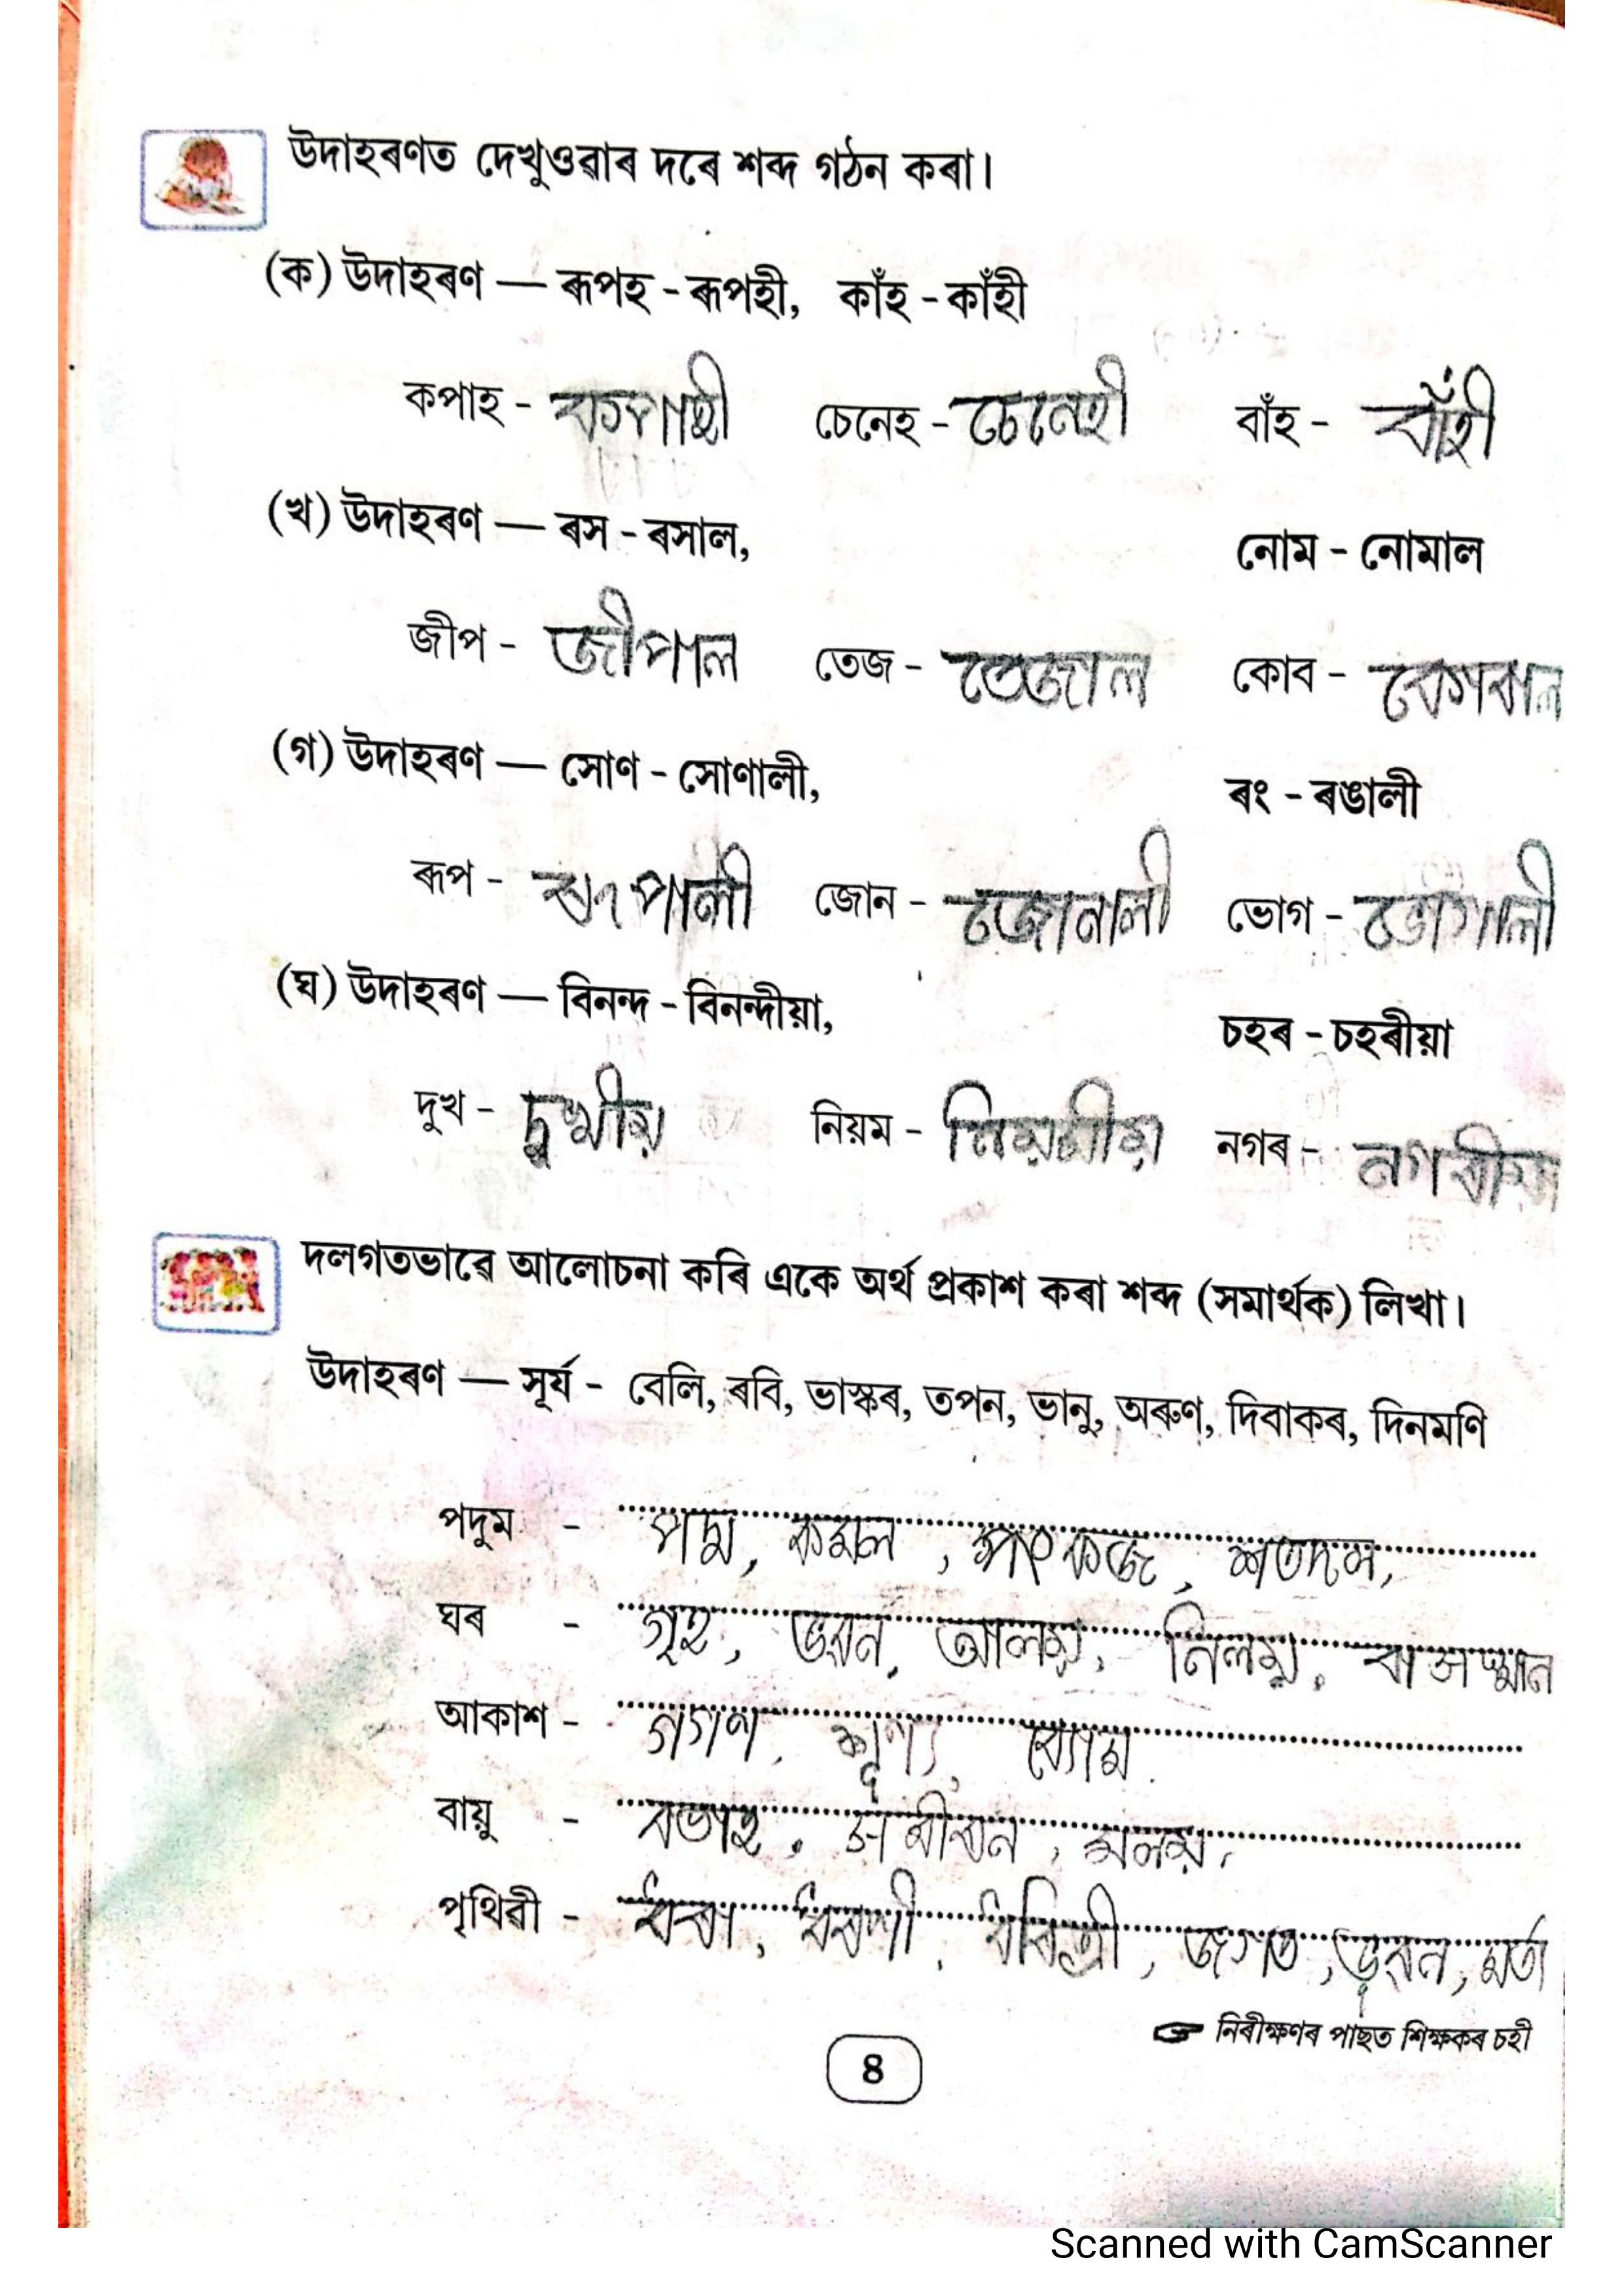 উদাহৰণত দেখুওৱাৰ দৰে শব্দ গঠন কৰা।
(ক) উদাহৰণ — ৰূপহ - ৰূপহী, কাঁহ - কাঁহী
কপাহ - কপাহী চেনেহ - চেনেহী বাঁহ - বাঁহী
(খ) উদাহৰণ — ৰস - ৰসাল, নোম - নোমাল
জীপ - জীপাল তেজ - তেজাল কোব - কোবাল
(গ) উদাহৰণ — সোণ - সোণালী, ৰং - ৰঙালী
ৰূপ - ৰূপালী জোন - জোনালী ভোগ - ভোগালী
(ঘ) উদাহৰণ — বিনন্দ - বিনন্দীয়া, চহৰ - চহৰীয়া
দুখ - দুখীয় নিয়ম - নিয়মীয় নগৰ - নগৰীয়া
দলগতভাৱে আলোচনা কৰি একে অৰ্থ প্ৰকাশ কৰা শব্দ (সমাৰ্থক) লিখা।
উদাহৰণ — সূৰ্য - বেলি, ৰবি, ভাস্কৰ, তপন, ভানু, অৰুণ, দিবাকৰ, দিনমণি
পদুম - পদ্ম, কমল, পংকজ, শতদল,
ঘৰ - গৃহ, ভৱন, আলয়, নিলয়,
আকাশ - গগণ, শূণ্য, ব্যোম
বায়ু - বতাহ, সমীৰন, মলয়,
পৃথিৱী - ধৰা, ধৰণী, ধৰিত্ৰী, জগত, ভূৱন, মৰ্ত্য
নিৰীক্ষণৰ পাছত শিক্ষকৰ চহী
8
Scanned with CamScanner